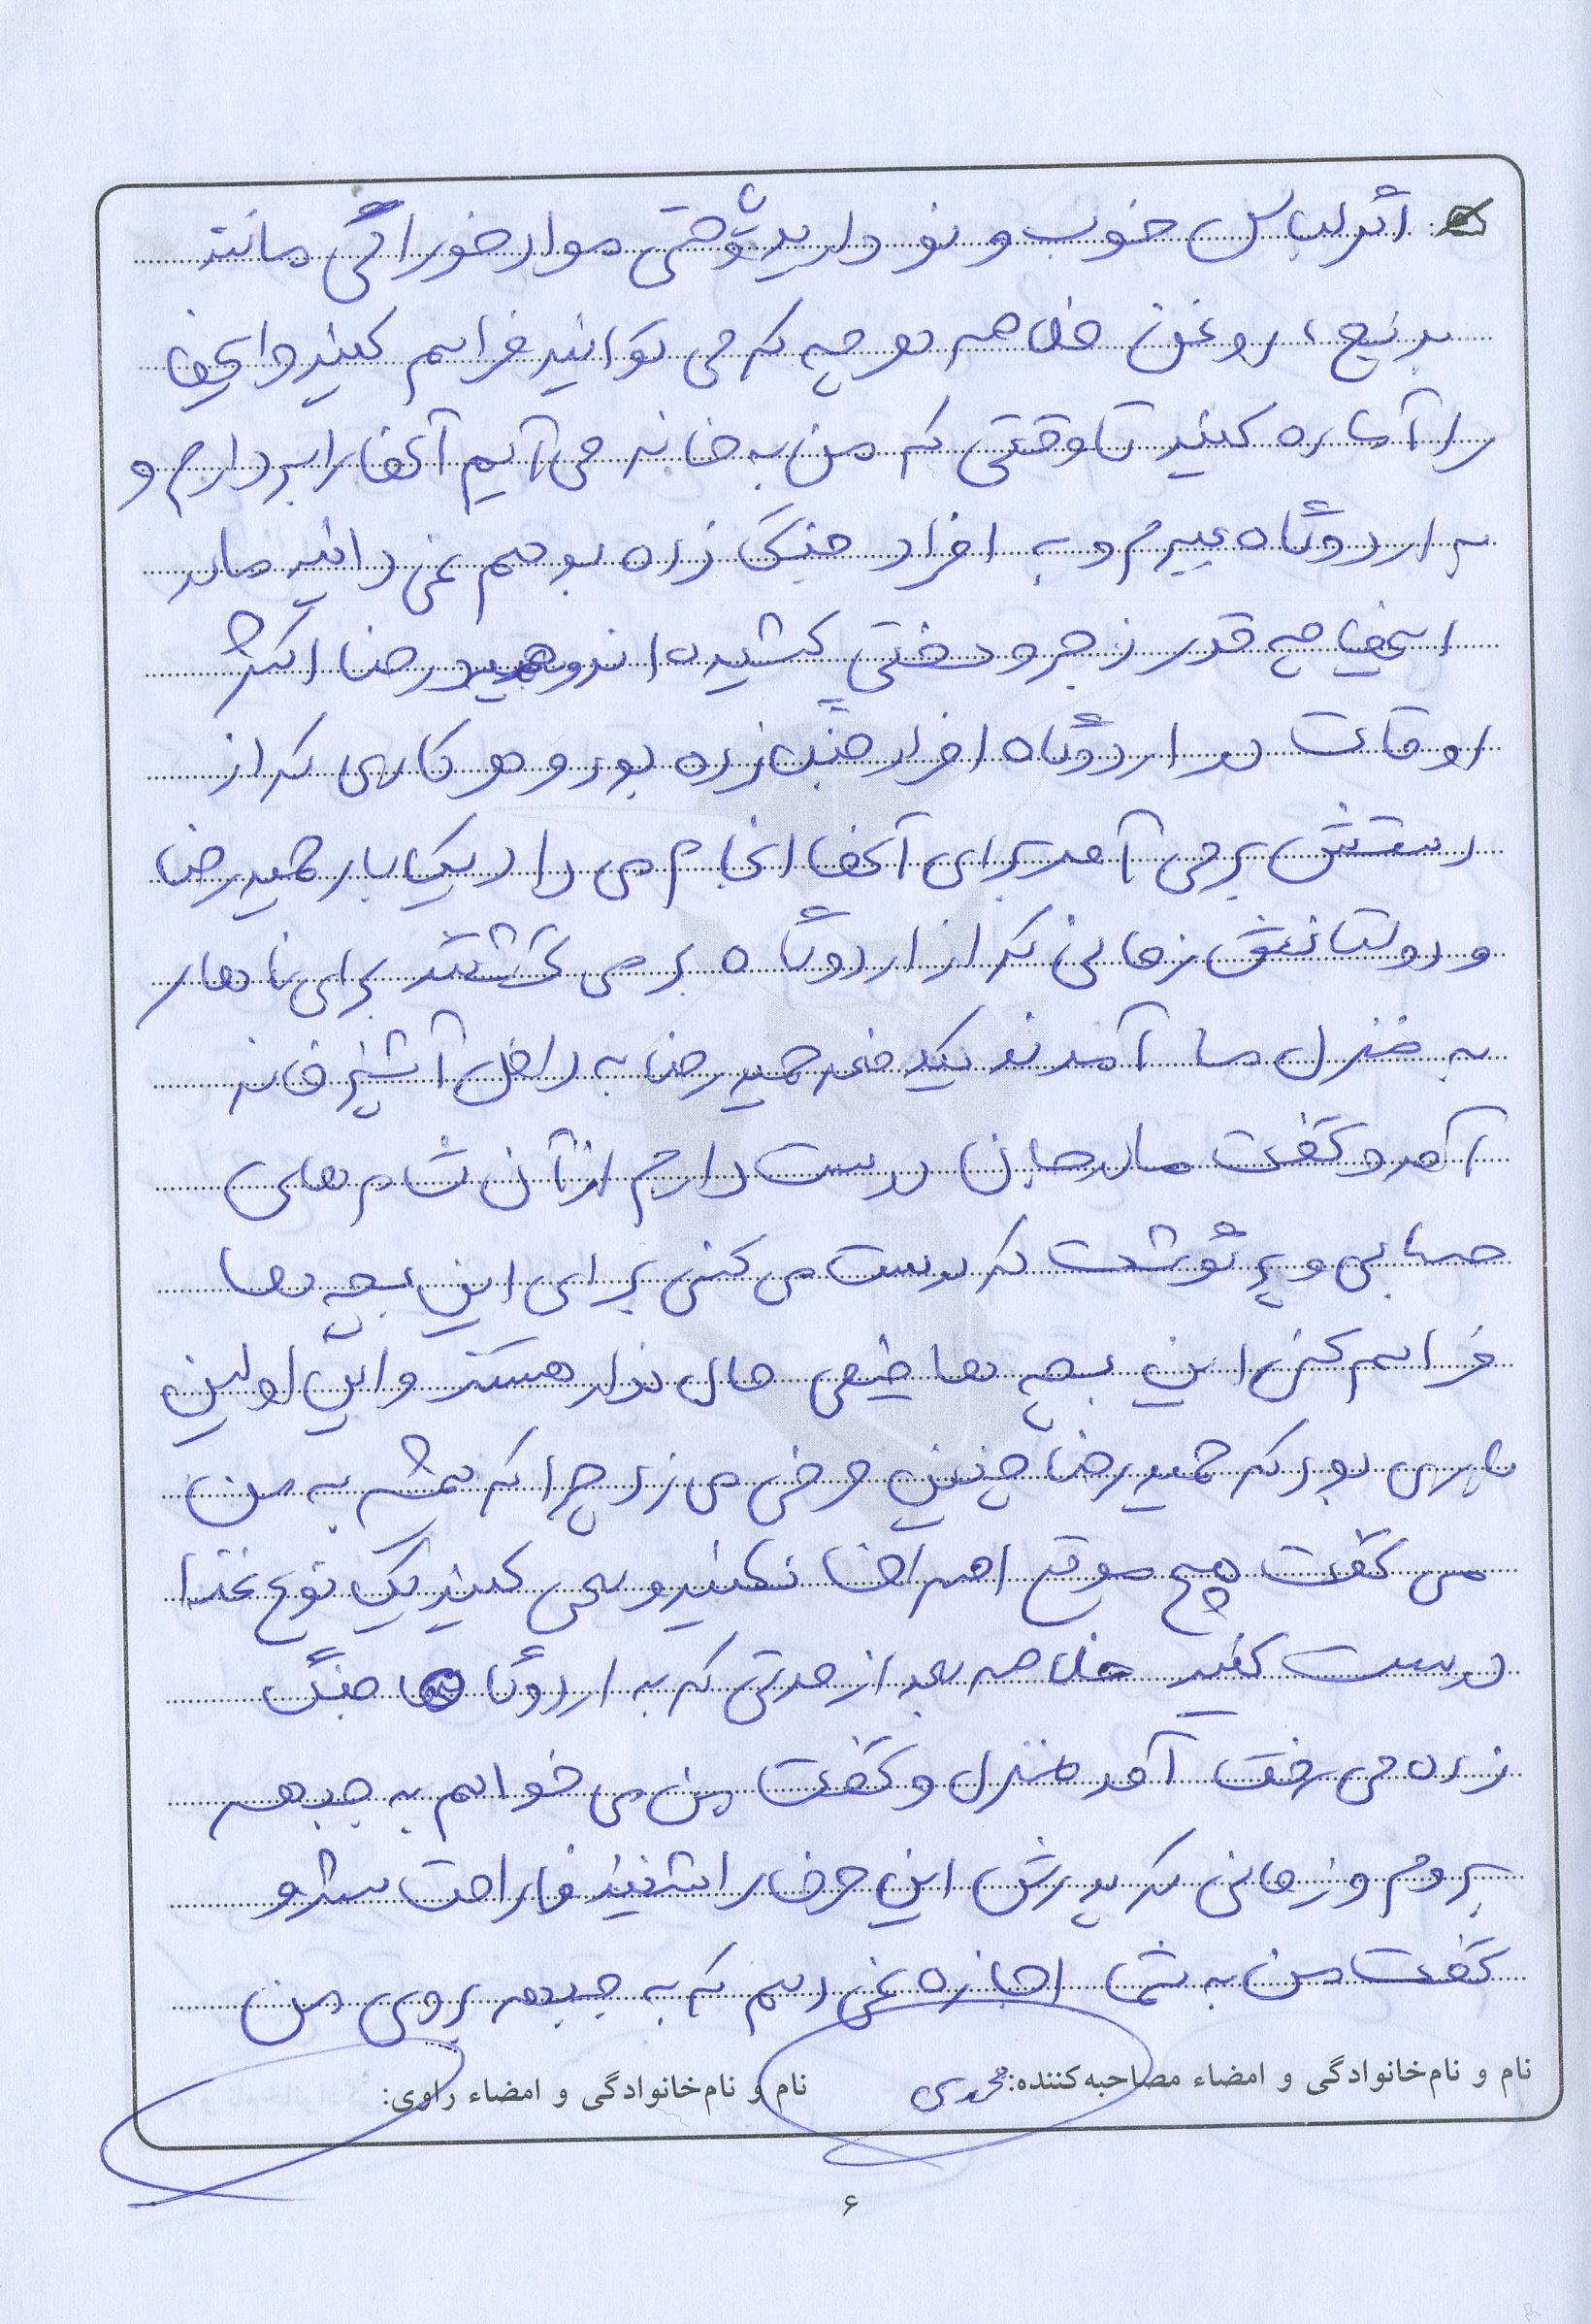 اگر لباس خوب و نو دارید و حتی مواد خوراکی مانند
برنج، روغن خلاصه هر چه که می توانید فراهم کنید و اینها
را آماده کنید تا وقتی که من به خانه می آیم آنها را بردارم و
به اردوگاه ببرم و به افراد جنگ زده بدهم نمی دانید مادر
اینها چه قدر زجر و سختی کشیده اند و حمیدرضا اکثر
اوقات در اردوگاه افراد جنگ زده بود و هر کاری که از
دستش بر می آمد برای آنها انجام می داد یک بار حمیدرضا
و دوستانش زمانی که از اردوگاه بر می گشتند برای ناهار
به منزل ما آمدند یکدفعه حمیدرضا به داخل آشپزخانه
آمد و گفت مادر جان دوست دارم از آن شام های
حسابی و پر گوشت که درست می کنی برای این بچه ها
فراهم کنی این بچه ها خیلی حال ندار هستند و این اولین
باری بود که حمیدرضا چنین حرفی می زد چرا که همیشه به من
می گفت هیچ موقع اصراف نکنید و سعی کنید یک نوع غذا
درست کنید خلاصه بعد از مدتی که به اردوگاه جنگ
زده می رفت آمد منزل و گفت من می خواهم به جبهه
بروم و زمانی که پدرش این حرف را شنید ناراحت شد و
گفت من به شما اجازه نمی دهم که به جبهه بروی من
نام و نام‌خانوادگی و امضاء مصاحبه‌کننده: محمدی نام و نام‌خانوادگی و امضاء راوی:
۶